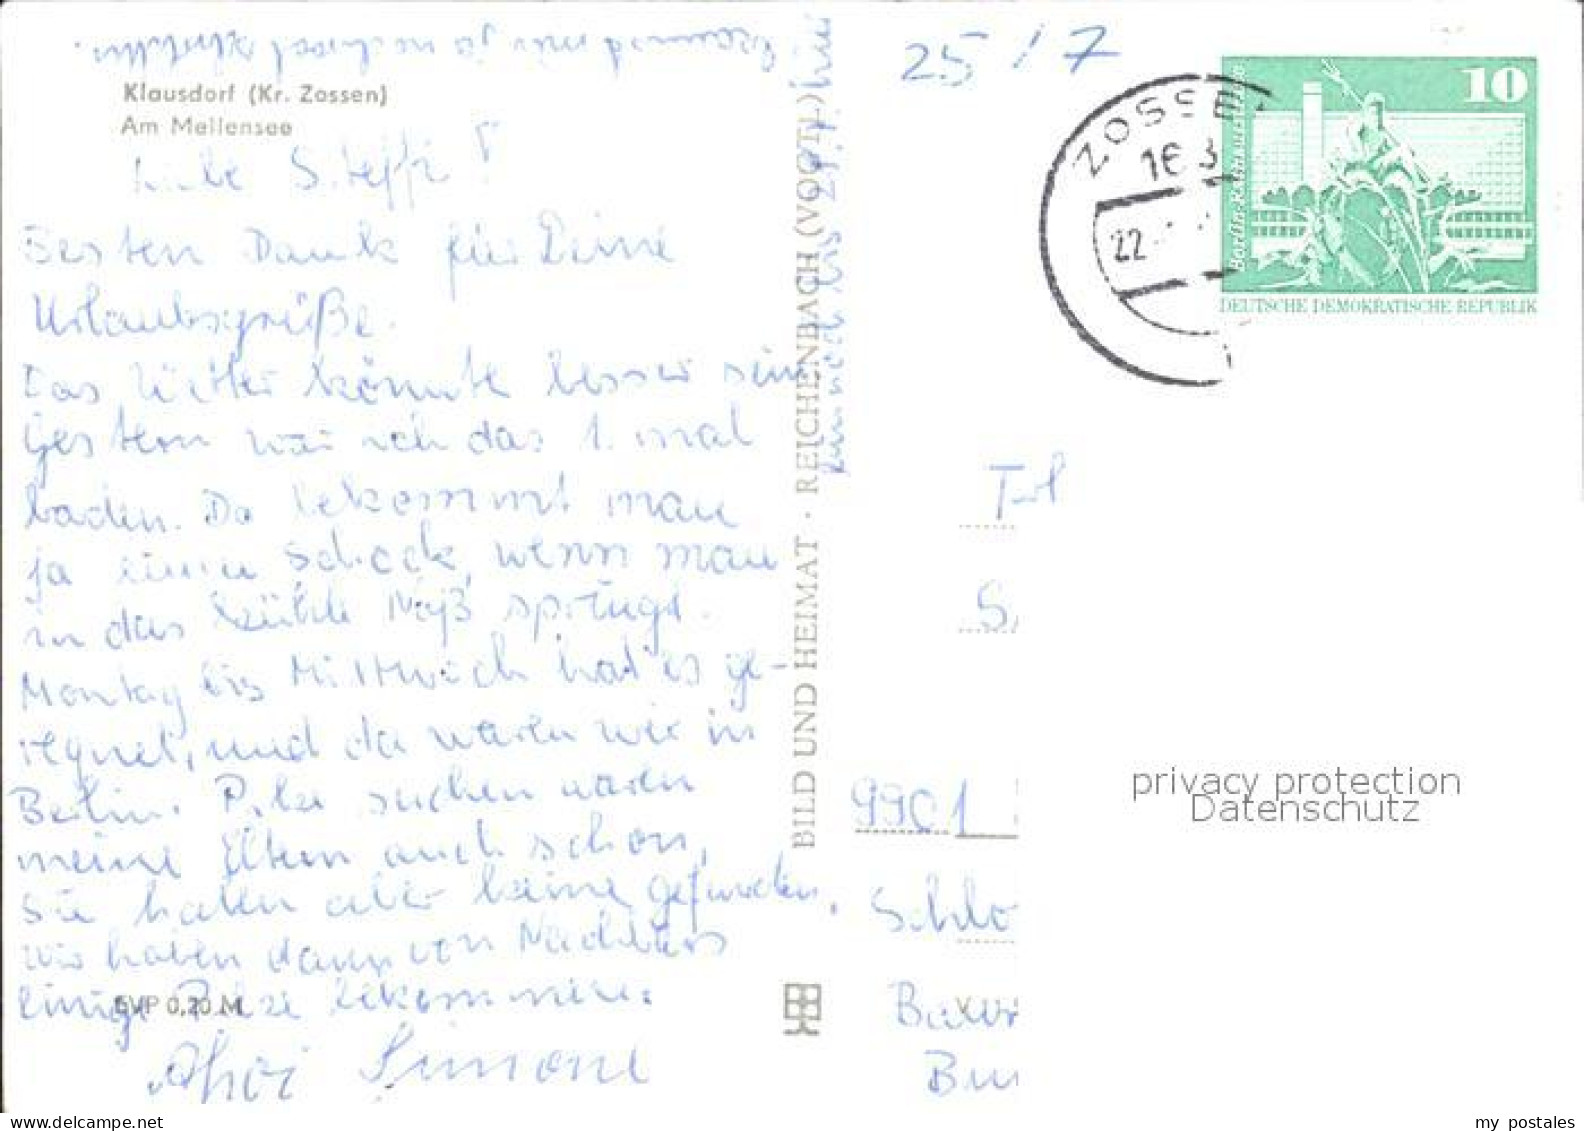 Klausdorf (Kr. Zossen)
Am Mellensee
Liebe Steffi!
Besten Dank für Deine
Urlaubsgrüße.
Das Wetter könnte besser sein
Gestern war ich das 1. mal
baden. Da bekommt man
ja einen Schock, wenn man
in das kühle Naß springt.
Montag bis Mittwoch hat es ge-
regnet, und da waren wir in
Berlin. Pilze suchen waren
meine Eltern auch schon,
sie haben aber keine gefunden,
wir haben dann von Nachbars
einige Pilze bekommen.
EVP 0,20 M
Ahoi Simone
BILD UND HEIMAT · REICHENBACH (VOGTL.)
25/7
ZOSSE
16 3
22
10
Berlin
DEUTSCHE DEMOKRATISCHE REPUBLIK
9901
Schlo
privacy protection
Datenschutz
my postales